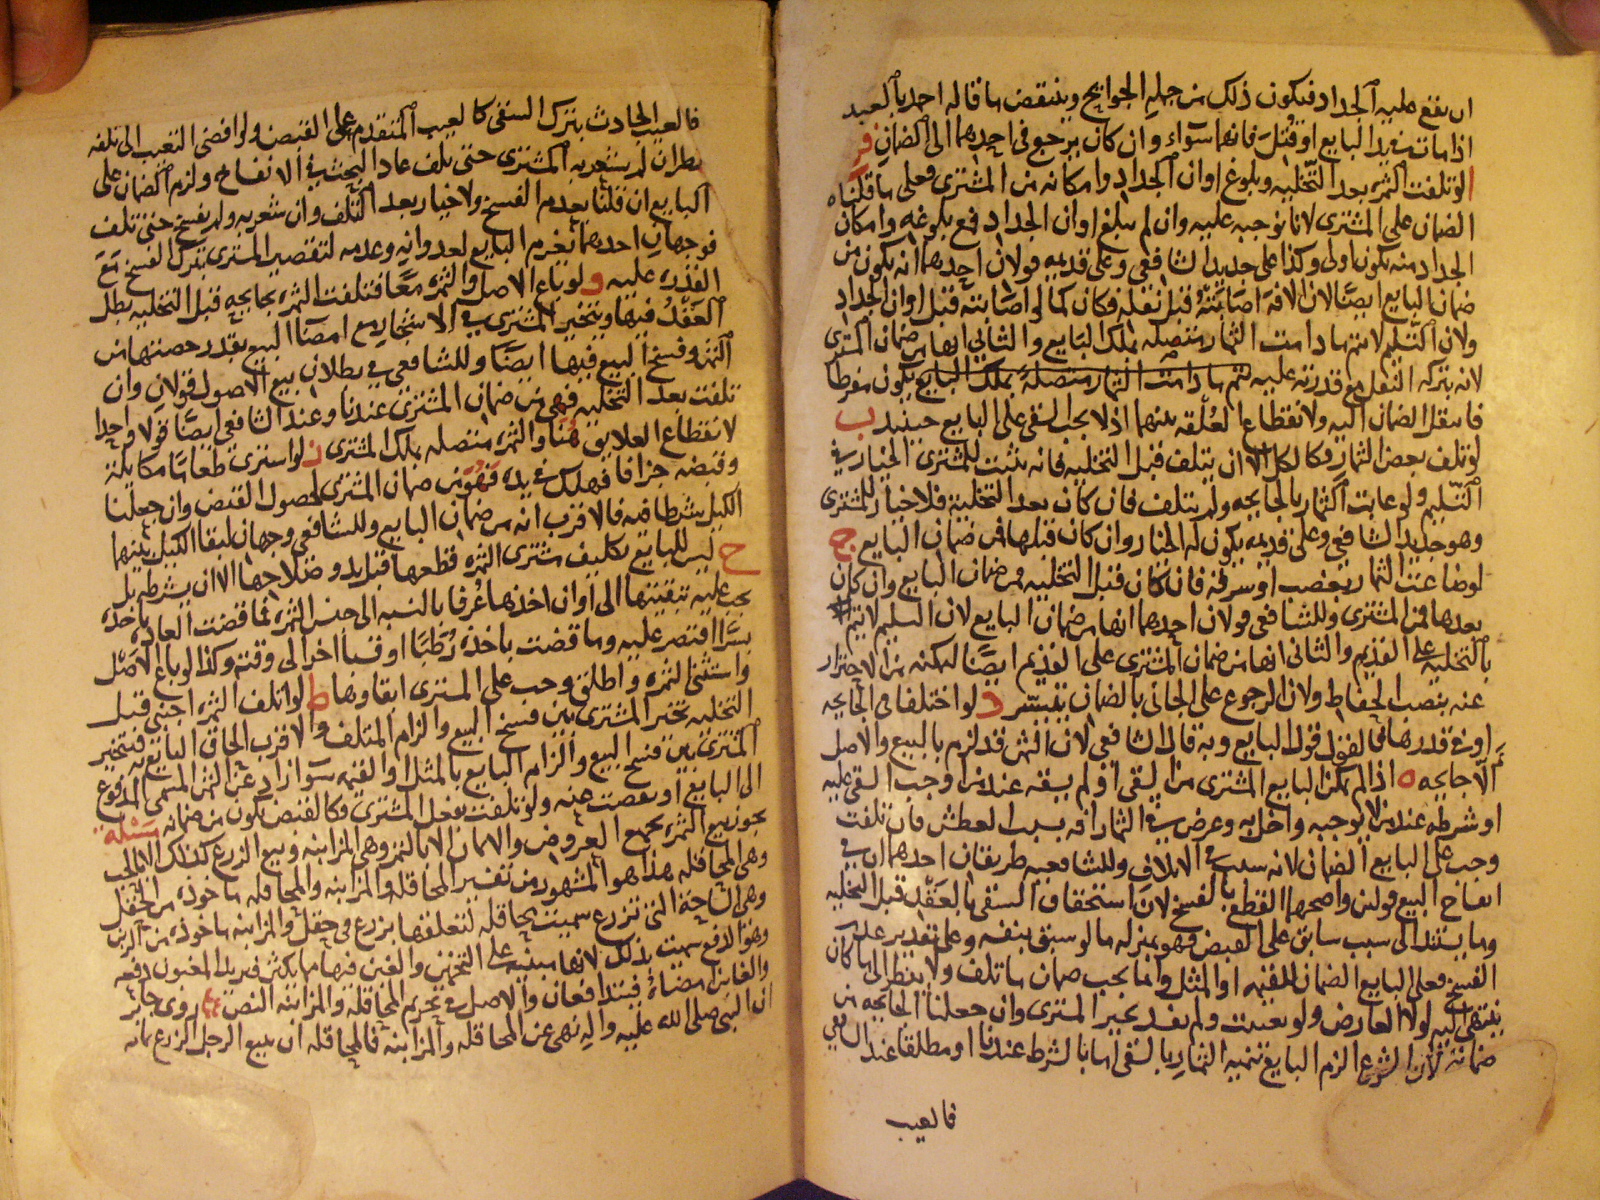 ان يقع عليه الجداد فيكون ذلك من جملة الجوايح وينتقض ما قاله احد بالعبد
اذا مات في يد البايع او قتل فانهما سواء وان كان يرجع في احدهما الى الضمان فر
ا لو تلفت الثمرة بعد التخلية وبلوغ اوان الجداد وامكانه من المشتري فعلى ما قلناه
الضمان على المشتري لانا نوجبه عليه وان لم يبلغ اوان الجداد فمع بلوغه وامكان
الجداد منه يكون اولى وكذا على جديد الشافعي وعلى قديمه قولان احدهما انه يكون من
ضمان البايع ايضا لان الافة اصابته قبل نقله فكان كما لو اصابته قبل اوان الجداد
ولان التسليم لا يتم ما دامت الثمار متصلة بملك البايع والثاني انها من ضمان المشتري
لانه بتركه النقل مع قدرته عليه يتم ما دامت الثمار متصلة بملك البايع يكون مفرطا
فانتقل الضمان اليه ولانقطاع العلقة بينهما اذ لا يجب السقي على البايع حينئذ ب
لو تلف بعض الثمار فكالكل الا ان يتلف قبل التخلية فانه يثبت للمشتري الخيار في
التسليم ولو عابت الثمار بالجايحة ولم يتلف فان كان بعد التخلية فلا خيار للمشتري
وهو جديد الشافعي وعلى قديمه يكون له الخيار وان كان قبلها فمن ضمان البايع ج
لو ضاعت الثمار بغصب او سرقة فان كان قبل التخلية فمن ضمان البايع وان كان
بعدها فمن المشتري وللشافعي قولان احدهما انها من ضمان البايع لان التسليم لا يتم
بالتخلية على القديم والثاني انها من ضمان المشتري على القديم ايضا لتمكنه من الاحتراز
عنه بنصب الحفاظ ولان الرجوع على الجاني بالضمان يتيسر د لو اختلفا في الجايحة
او في قدرها فالقول قول البايع وبه قال الشافعي لان الثمن قد لزم بالبيع والاصل
الا جايحة ه اذا لم يمكن البايع المشتري من السقي او لم يسقه عند من اوجب السقي عليه
او شرطه عند من لا يوجبه واخل به وعرض في الثمار افة بسبب العطش فان تلفت
وجب على البايع الضمان لانه سبب في الاتلاف وللشافعية طريقان احدهما ان في
انفساخ البيع قولين واصحهما القطع بالفسخ لان استحقاق السقي بالعقد قبل التخلية
وما يستند الى سبب سابق على القبض فهو بمنزلة ما لو سبق بنفسه وعلى تقدير عدم
الفسخ فعلى البايع الضمان للقيمة او المثل وانما يجب ضمان ما تلف ولا ينظر الى ما كان
ينتهي اليه لولا العارض ولو تعيبت ولم يفسد يخير المشتري وان جعلنا الجايحة من
ضمانه لان الشرع الزم البايع تنمية الثمار بالسقي اما بالشرط عندنا او مطلقا عند الشافعي
فالعيب
فالعيب الحادث بترك السقي كالعيب المتقدم على القبض ولو افضى التعيب الى تلفه
نظر ان لم يشعر به المشتري حتى تلف عاد البحث في الانفساخ ولزم الضمان على
البايع ان قلنا بعدم الفسخ ولا خيار بعد التلف وان شعر به ولم يفسخ حتى تلف
فوجهان احدهما يغرم البايع لعدوانه وعدمه لتقصير المشتري بترك الفسخ مع
القدرة عليه و لو باع الاصل والثمرة معا فتلفت الثمرة بجايحة قبل التخلية بطل
العقد فيها ويتخير المشتري في الاشجار مع امضا البيع بقدر حصتها من
الثمن وفسخ البيع فيها ايضا وللشافعي في بطلان بيع الاصول قولان وان
تلفت بعد التخلية فهي من ضمان المشتري عندنا وعند الشافعي ايضا قولا واحدا
لانقطاع العلايق هنا والثمرة متصلة بملك المشتري ز لو اشترى طعاما مكايلة
وقبضه جزافا فهلك في يده فهو من ضمان المشتري لحصول القبض وان جعلنا
الكيل شرطا فيه فالاقرب انه من ضمان البايع وللشافعي وجهان لبقاء الكيل بينهما
ح ليس للبايع تكليف مشتري الثمرة قطعها قبل بدو صلاحها الا ان يشرطه بل
يجب عليه تبقيتها الى اوان اخذها عرفا بالنسبة الى جنس الثمرة فما قضت العادة باخذه
بسرا اقتصر عليه وما قضت باخذه رطبا او قسبا اخر الى وقته وكذا لو باع الاصل
واستثنى الثمرة واطلق وجب على المشتري ابقاوها ط لو اتلف الثمرة اجنبي قبل
التخلية تخير المشتري بين فسخ البيع والزام المتلف والاقرب الحاق البايع به فيتخير
المشتري بين فسخ البيع والزام البايع بالمثل او القيمة سواء زاد عن الثمن المسمى المدفوع
الى البايع او نقصت عنه ولو تلفت بفعل المشتري فكالقبض يكون من ضمانه مسئلة
يجوز بيع الثمرة بجميع العروض والاثمان الا بالتمر وهي المزابنة وبيع الزرع كذلك الا بالحب
وهي المحاقلة هذا هو المشهور من تفسير المحاقلة والمزابنة والمحاقلة ماخوذة من الحقل
وهي الساحة التي تزرع سميت محاقلة لتعلقها بزرع في حقل والمزابنة ماخوذة من الزبن
وهو الدفع سميت بذلك لانها مبنية على التخمين والغبن فيها مما يكثر فيريد المغبون دفعه
والغابن امضاه فيتدافعان والاصل في تحريم المحاقلة والمزابنة النص روى جابر
ان النبي صلى الله عليه واله نهى عن المحاقلة والمزابنة فالمحاقلة ان يبيع الرجل الزرع بمائة